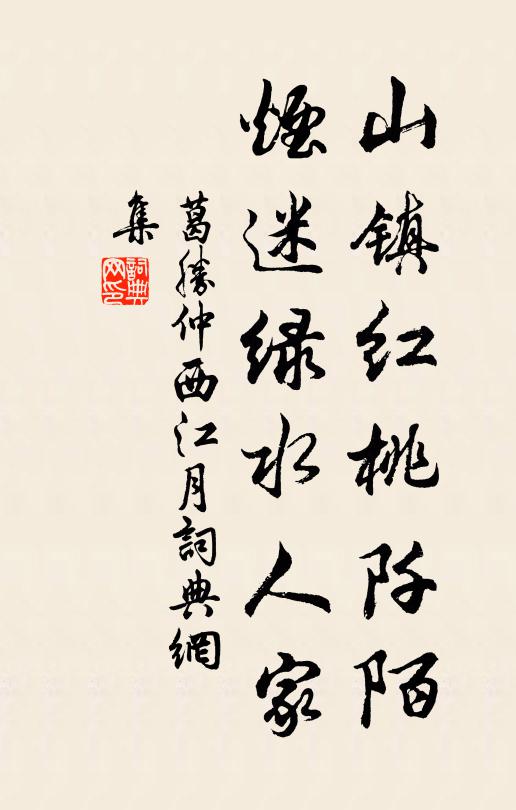 山镇红桃阡陌
煙迷绿水人家
葛勝仲西江月詞典網
集
詞典
网印